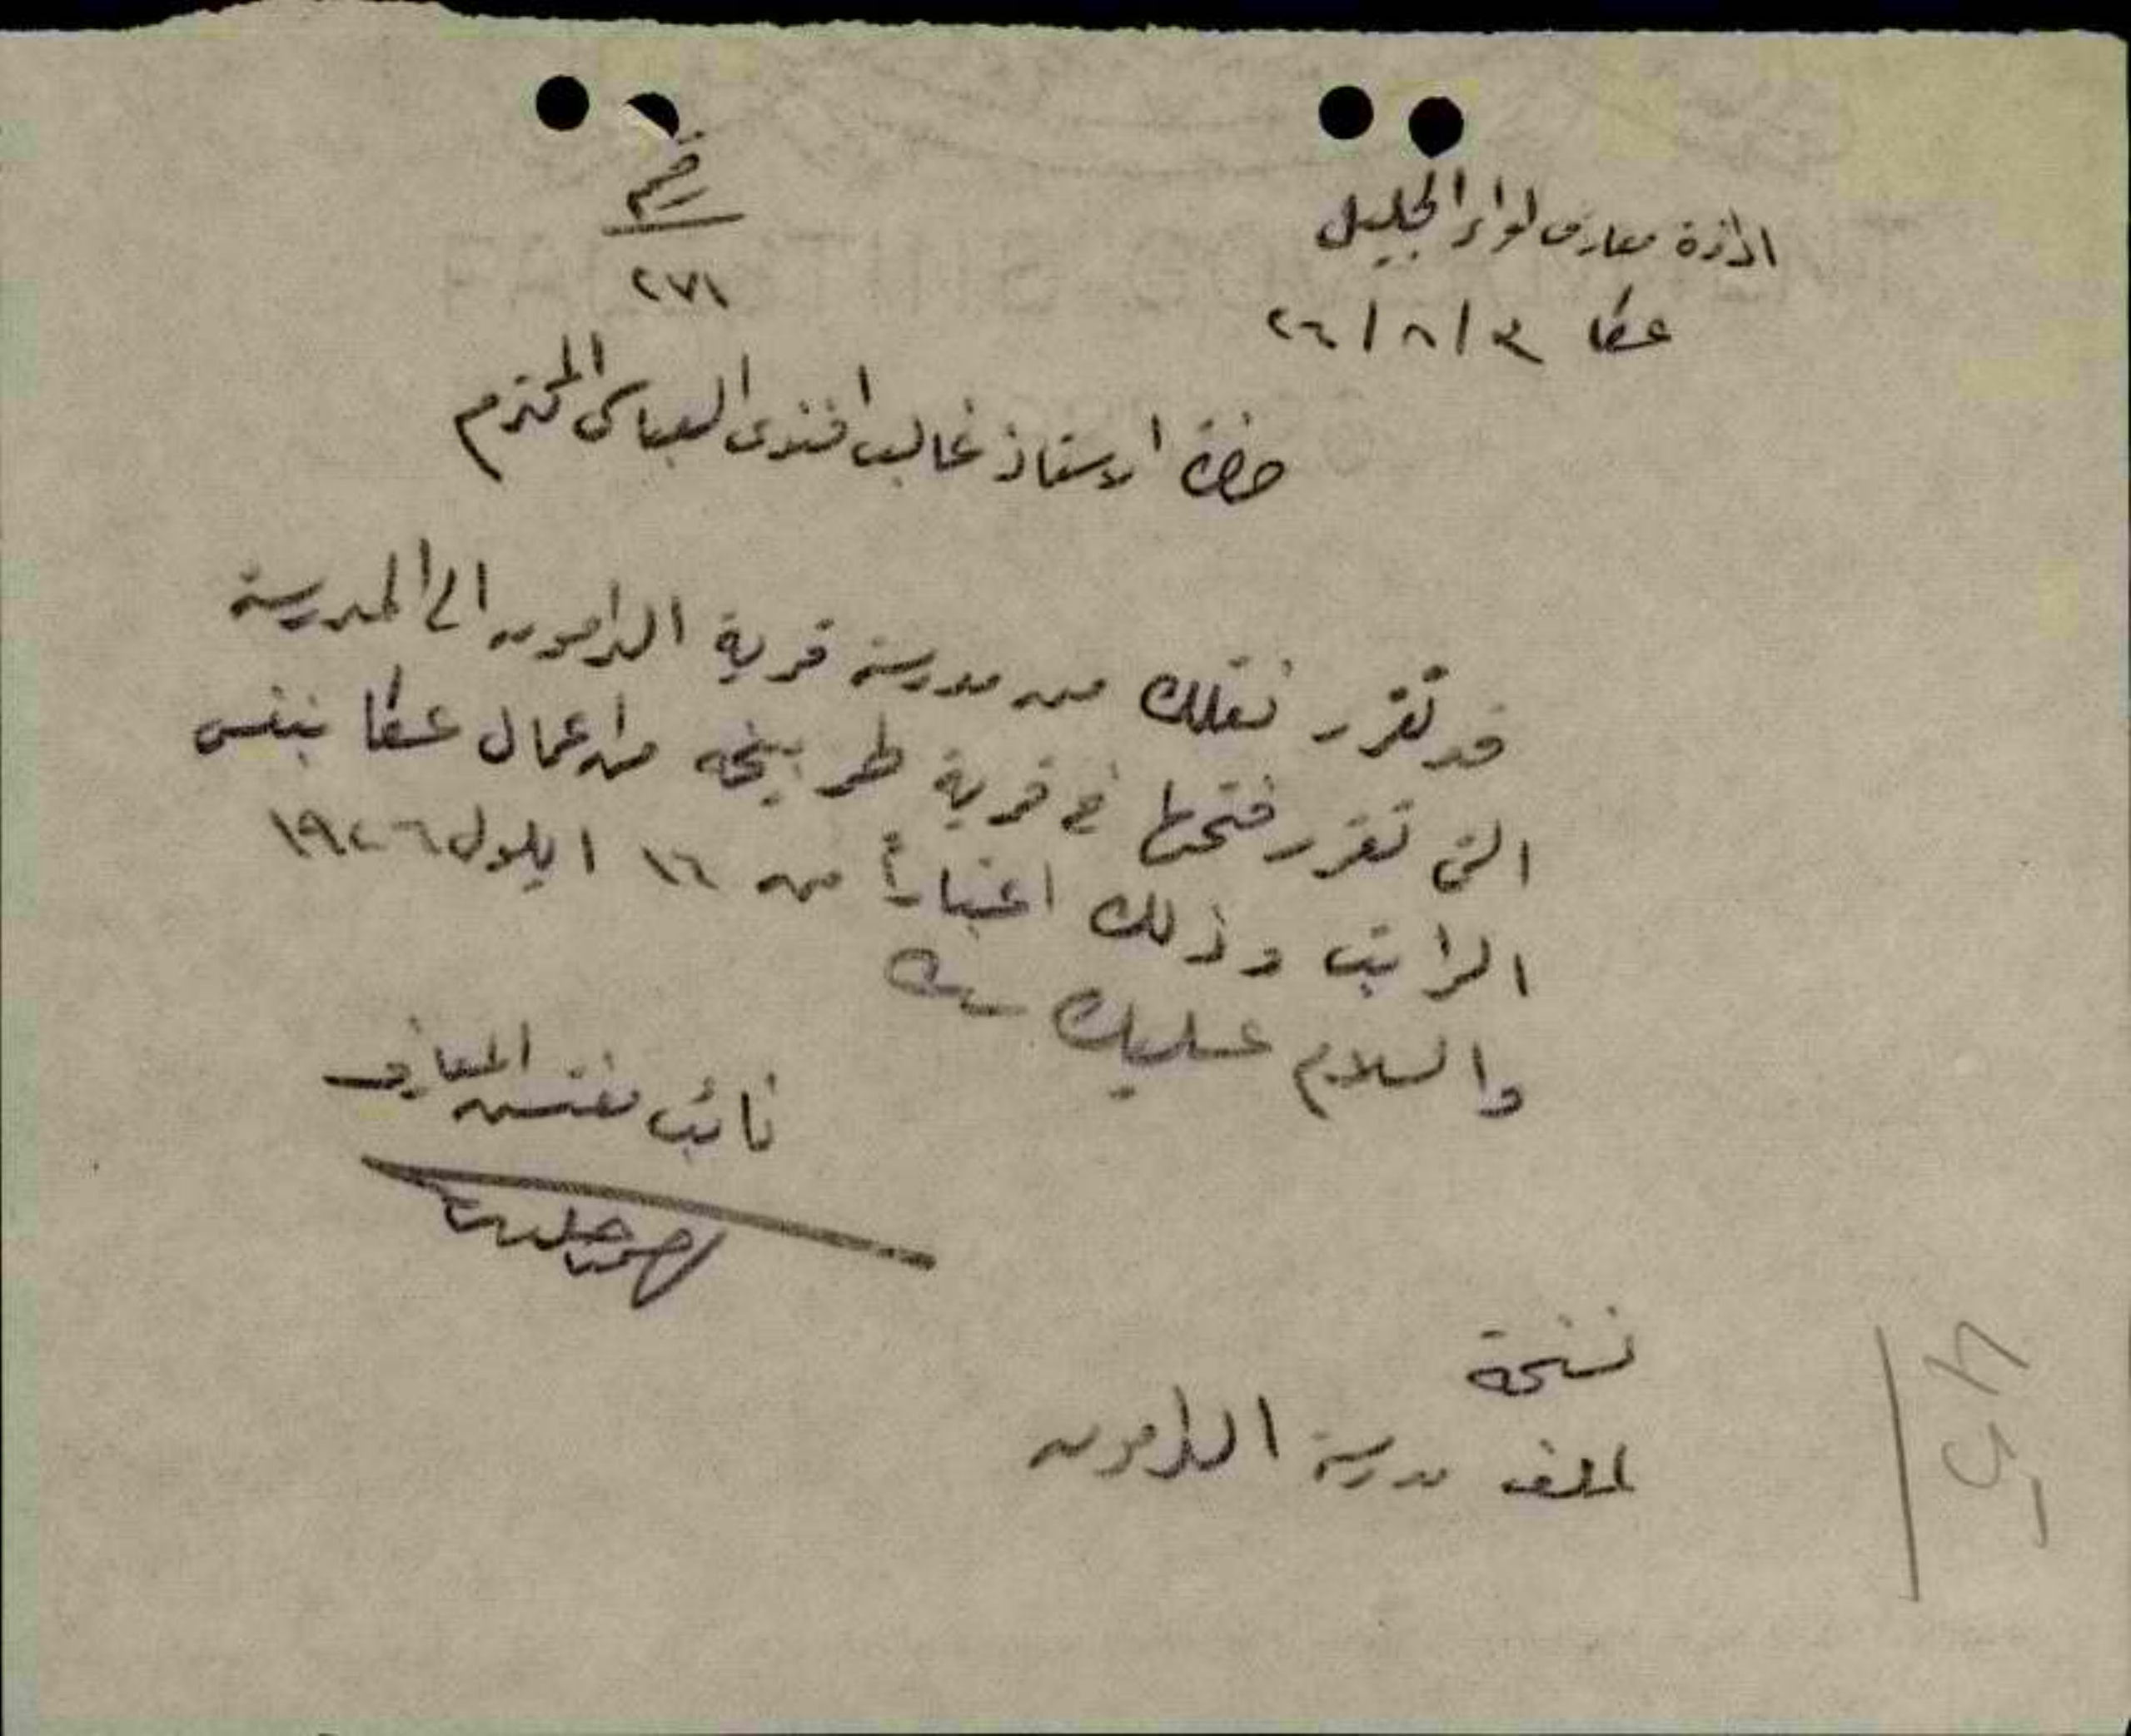 ادارة معارف لواء الجليل
رقم
٢٧١
عكا ٣/٨/٢٦
حضرة الاستاذ غالب افندي العباسي المحترم
قد تقرر نقلك من مدرسة قرية الدامون الى المدرسة
التي تقرر فتحها في قرية طربيخه من اعمال عكا بنفس
الراتب وذلك اعتباراً من ١٦ ايلول ١٩٢٦
والسلام عليك
نائب مفتش المعارف
نسخة
لملف مدرسة الدامون